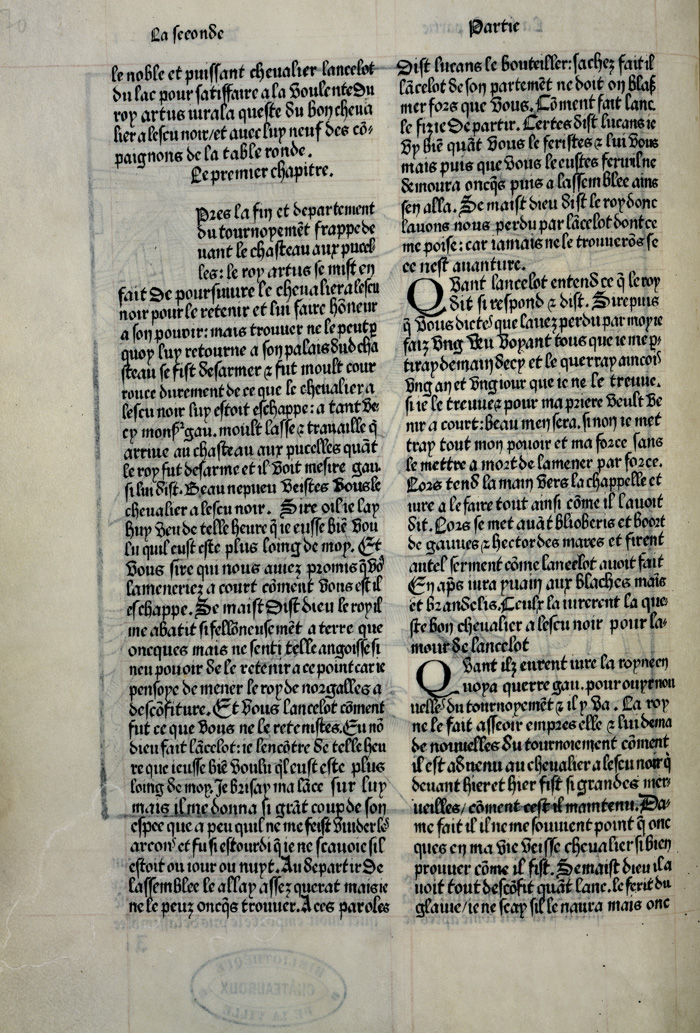 La seconde
Partie
le noble et puissant chevalier lancelot
du lac pour satiffaire a la voulente du
roy artus iura la queste du bon cheua
lier a lescu noir/et auec luy neuf des cõ-
paignons de la table ronde.
Le premier chapitre.
Pres la fin et departement
du tournoyemẽt frappe de
uant le chasteau aux pucel
les: le roy artus se mist en
fait de poursuiure le cheualier a lescu
noir pour le retenir et lui faire hõneur
a son pouoir: mais trouuer ne le peut p
quoy luy retourne a son palais dud cha
steau se fist desarmer ⁊ fut moult cour
rouce durement de ce que le cheualier a
lescu noir luy estoit eschappe: a tant ve-
cy monsr gau. moult lasse ⁊ trauaille q̃
arriue au chasteau aux pucelles quãt
le roy fut desarme et il voit mesire gau.
si lui dist. Beau nepueu veistes vous le
cheualier a lescu noir. Sire oil ie lay
huy veu de telle heure q̃ ie eusse biẽ vou
lu quil eust este plus loing de moy. Et
vous sire qui nous auiez promis q̃ vo9
lameneriez a court cõment vous est il
eschappe. Se maist dist dieu le roy il
me abatit si fellõneusemẽt a terre que
oncques mais ne senti telle angoisse si
neu pouoir de le retenir a ce point car ie
pensoye de mener le roy de norgalles a
descõfiture. Et vous lancelot cõment
fut ce que vous ne le retenistes. Eu nõ
dieu fait lãcelot: ie lencõtre de telle heu
re que ieusse biẽ voulu q̃l eust este plus
loing de moy. Je brisay ma lãce sur luy
mais il me donna si grãt coup de son
espee que a peu quil ne me feist vuider les
arcons et fu si estourdi q̃ ie ne scauoie sil
estoit ou iour ou nuyt. Au departir de
lassemblee le allay assez querat mais ie
ne le peuz oncq̃s trouuer. A ces paroles
Dist lucans le bouteiller: sachez fait il
lãcelot de son partemẽt ne doit on blas
mer fors que vous. Cõment fait lanc.
le fiz ie departir. Certes dist lucans ie
vy biẽ quãt vous le feristes ⁊ lui vous
mais puis que vous le eustes feru il ne
demoura oncq̃s puis a lassemblee ains
sen alla. Se maist dieu dist le roy donc
lauons nous perdu par lãcelot dont ce
me poise: car iamais ne le trouuerõs se
ce nest auanture.
Quant lancelot entend ce q̃ le roy
dit si respond ⁊ dist. Sire puis
q̃ vous dictes que lauez perdu par moy ie
faiz vng veu voyant tous que ie me p-
tiray demain decy et le querray aincois
vng an et vng iour que ie ne le treuue.
si ie le treuue ⁊ pour ma priere veult ve
nir a court: beau men sera. si non ie met
tray tout mon pouoir et ma force sans
le mettre a mort de lamener par force.
Lors tend la main vers la chappelle et
iure a le faire tout ainsi cõme il lauoit
dit. Lors se met auãt blioberis et boort
de gauues ⁊ hector des mares et firent
autel serment cõme lancelot auoit fait
En aps iura yuain aux blaches mais
et brandelis. Ceulx la iurerent la que-
ste bon cheualier a lescu noir pour la-
mour de lancelot
Quant ilz eurent iure la royne en
uoya querre gau. pour ouyr nou
uelles du tournoyemẽt ⁊ il y va. La roy
ne le fait asseoir empres elle ⁊ lui dema
de nouuelles du tournoiement cõment
il est aduenu au cheualier a lescu noir q̃
deuant hier et hier fist si grandes mer-
ueilles/cõment cest il maintenu. Da-
me fait il il ne me souuient point q̃ onc
ques en ma vie veisse cheualier si bien
prouuer cõme il fist. Se maist dieu il a
uoit tout descõfit quãt lanc. le ferit du
glaiue/ie ne scay sil le naura mais onc
BIBLIOTHEQUE
CHATEAUROUX
DE LA VILLE